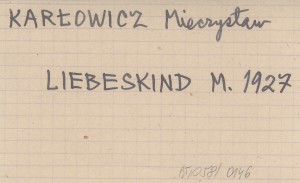 KARŁOWICZ Mieczysław
LIEBESKIND M. 1927